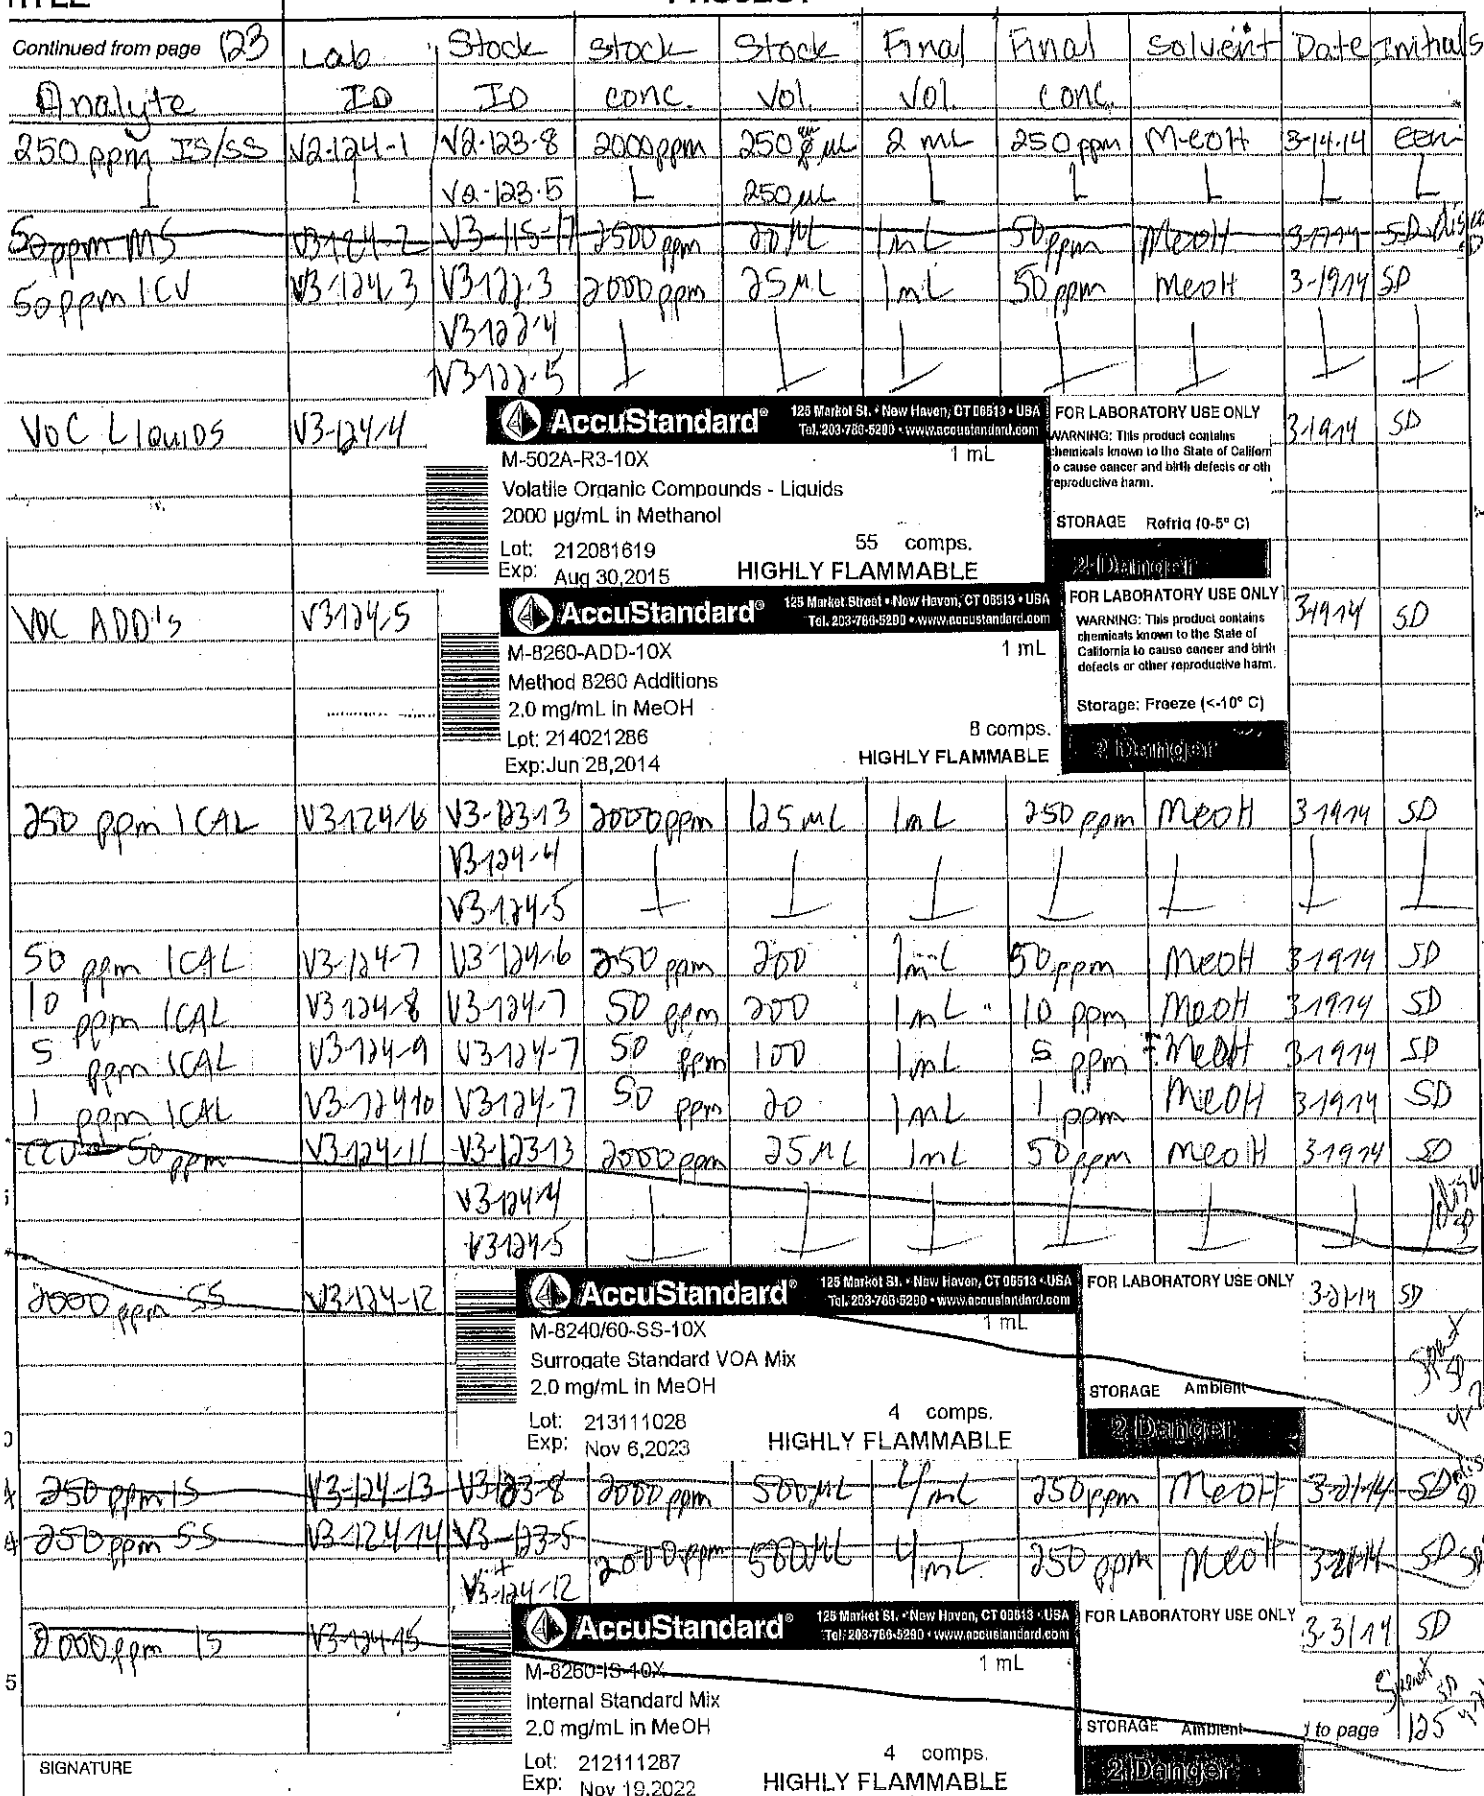 Continued from page 123 Lab Stock Stock Stock Final Final Solvent Date Initials
Analyte ID ID conc. Vol. Vol. Conc.
250 ppm IS/SS V2-124-1 V2-123-8 2000ppm 250 µL 2 mL 250 ppm MeOH 3-14-14
V2-123-5 250 µL
50ppm MS V3-124-2 V3-115-17 2500 ppm 20 µL 1mL 50ppm MeOH SD
50ppm ICV V3-124-3 V3-122-3 2000ppm 25 µL 1mL 50 ppm MeOH 3-19-14 SD
V3-122-4
V3-122-5
VOC LIQUIDS V3-124-4 3-19-14 SD
AccuStandard® 125 Market St. • New Haven, CT 06513 • USA
Tel. 203-786-5290 • www.accustandard.com
M-502A-R3-10X 1 mL
Volatile Organic Compounds - Liquids
2000 µg/mL in Methanol
Lot: 212081619 55 comps.
Exp: Aug 30,2015 HIGHLY FLAMMABLE
FOR LABORATORY USE ONLY
WARNING: This product contains
chemicals known to the State of Californ
o cause cancer and birth defects or oth
eproductive harm.
STORAGE Refrig (0-5° C)
2 Danger
VOC ADD's V3-124-5 3-19-14 SD
AccuStandard® 125 Market Street • New Haven, CT 06513 • USA
Tel. 203-786-5290 • www.accustandard.com
M-8260-ADD-10X 1 mL
Method 8260 Additions
2.0 mg/mL in MeOH
Lot: 214021286 8 comps.
Exp:Jun 28,2014 HIGHLY FLAMMABLE
FOR LABORATORY USE ONLY
WARNING: This product contains
chemicals known to the State of
California to cause cancer and birth
defects or other reproductive harm.
Storage: Freeze (<-10° C)
2 Danger
250 ppm ICAL V3-124-6 V3-123-13 2000ppm 125 µL 1mL 250 ppm MeOH 3-19-14 SD
V3-124-4
V3-124-5
50 ppm ICAL V3-124-7 V3-124-6 250 ppm 200 1mL 50 ppm MeOH 3-19-14 SD
10 ppm ICAL V3-124-8 V3-124-7 50 ppm 200 1mL 10 ppm MeOH 3-19-14 SD
5 ppm ICAL V3-124-9 V3-124-7 50 ppm 100 1mL 5 ppm MeOH 3-19-14 SD
1 ppm ICAL V3-124-10 V3-124-7 50 ppm 20 1mL 1 ppm MeOH 3-19-14 SD
CCV 50 ppm V3-124-11 V3-123-13 2000ppm 25 µL 1mL 50ppm MeOH 3-19-14 SD
V3-124-4
V3-124-5
2000 ppm SS V3-124-12 3-21-14 SD
AccuStandard® 125 Market St. • New Haven, CT 06513 • USA
Tel. 203-786-5290 • www.accustandard.com
M-8240/60-SS-10X 1 mL
Surrogate Standard VOA Mix
2.0 mg/mL in MeOH
Lot: 213111028 4 comps.
Exp: Nov 6,2023 HIGHLY FLAMMABLE
FOR LABORATORY USE ONLY
STORAGE Ambient
2 Danger
Spent SD
250 ppm IS V3-124-13 V3-123-8 2000 ppm 500 µL 4 mL 250ppm MeOH 3-21-14 SD
250 ppm SS V3-124-14 V3-123-5 2000 ppm 500 µL 4 mL 250 ppm MeOH 3-21-14 SD
+
V3-124-12
2000 ppm IS V3-124-15 3-31-14 SD
AccuStandard® 125 Market St. • New Haven, CT 06513 • USA
Tel. 203-786-5290 • www.accustandard.com
M-8260-IS-10X 1 mL
Internal Standard Mix
2.0 mg/mL in MeOH
Lot: 212111287 4 comps.
Exp: Nov 19,2022 HIGHLY FLAMMABLE
FOR LABORATORY USE ONLY
STORAGE Ambient
2 Danger
Spent SD
to page 125
SIGNATURE